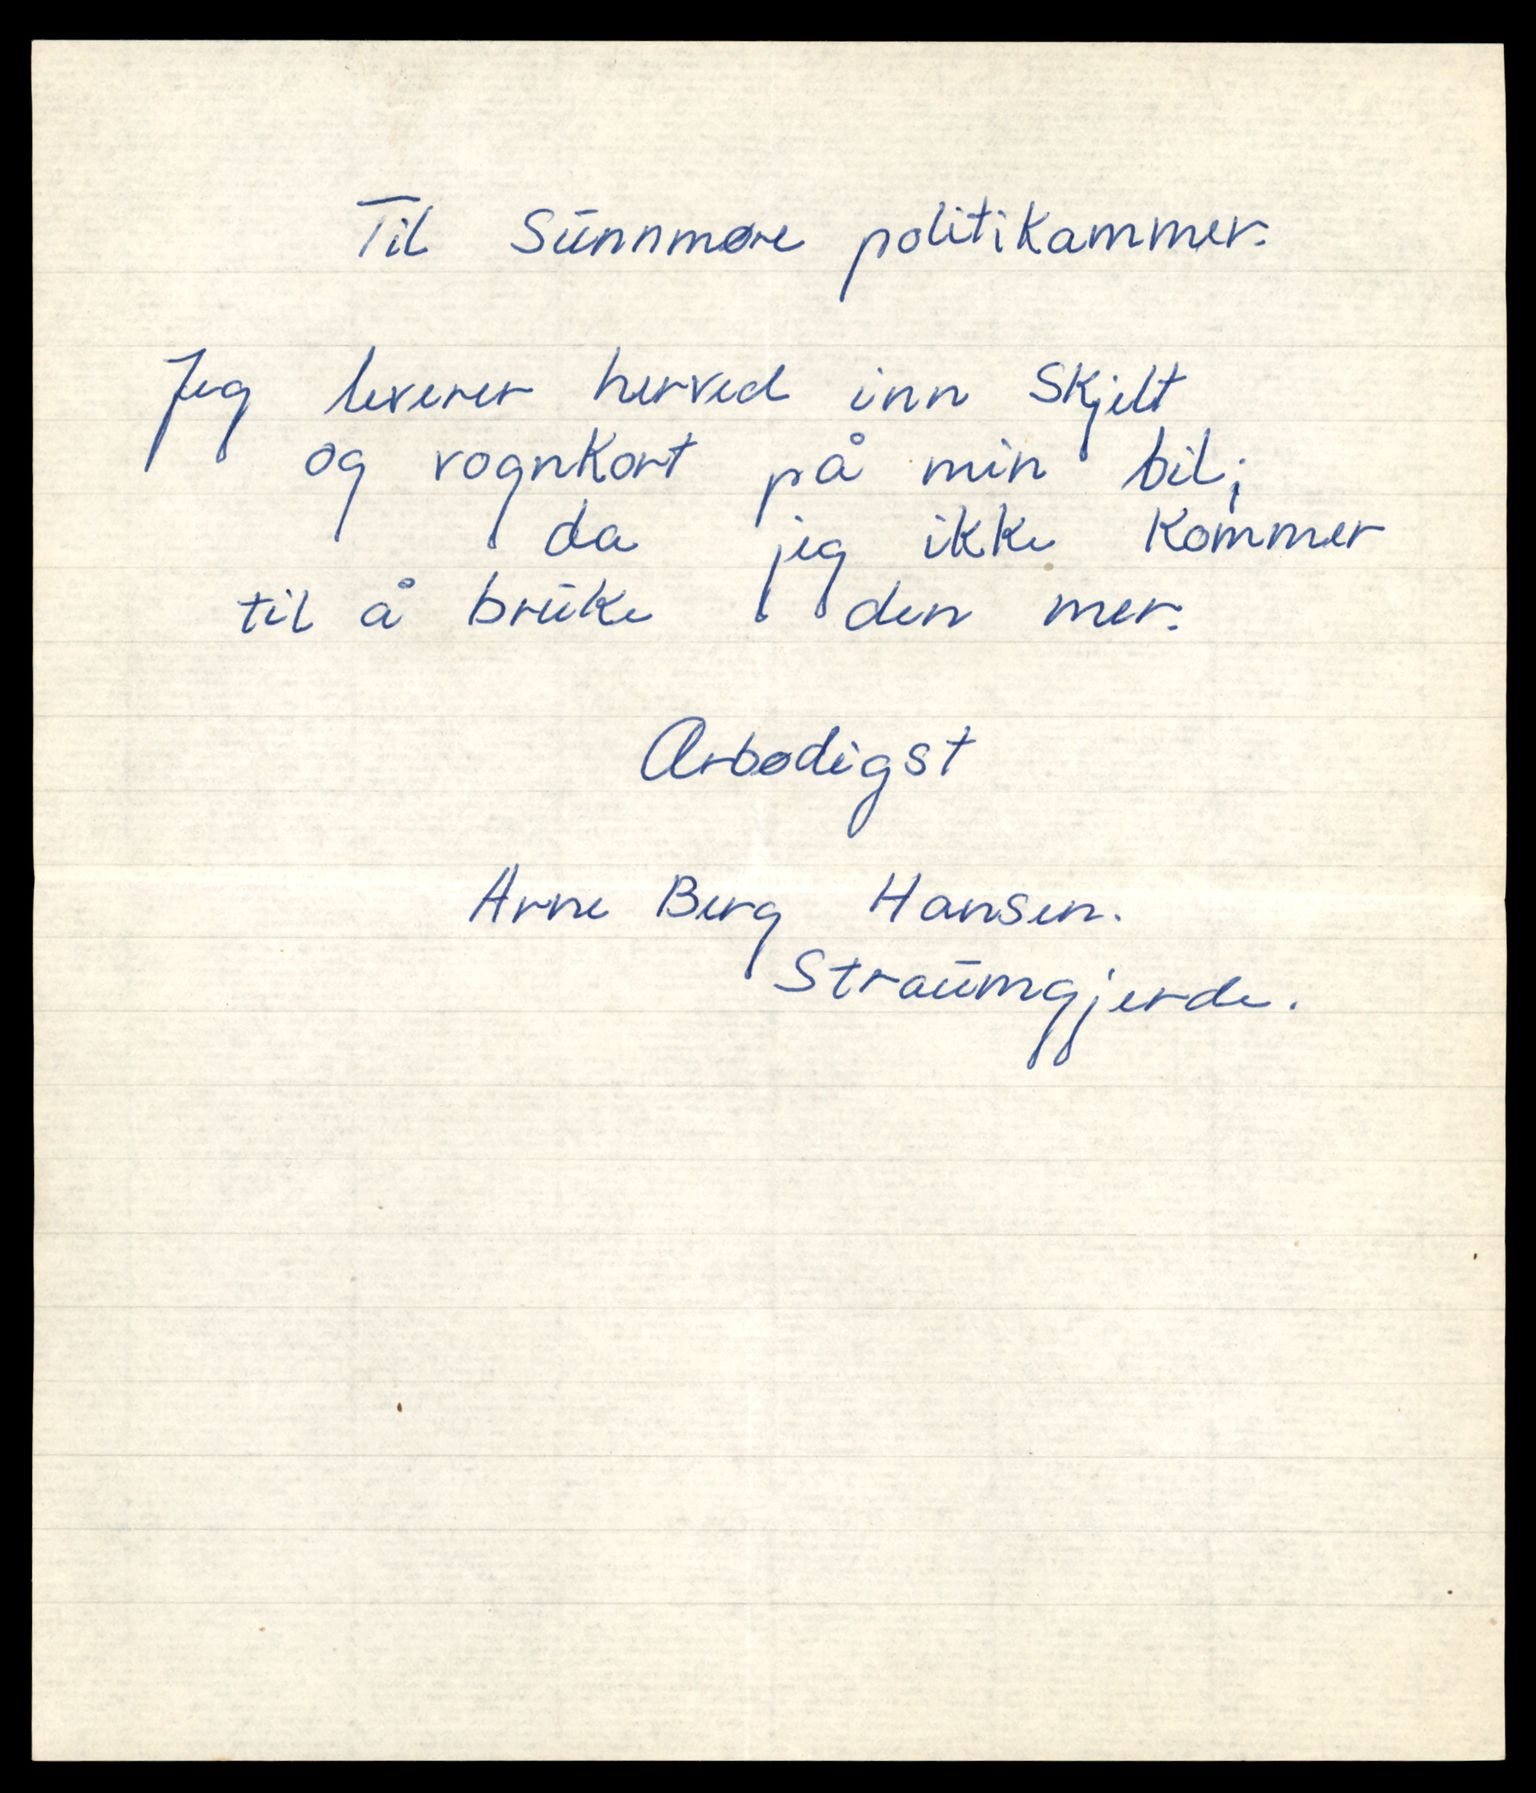 Til Sunnmøre politikammer.
Jeg leverer herved inn Skjelt
og vognkort på min bil;
da jeg ikke kommer
til å bruke den mer.
Ærbødigst
Arne Berg Hansen.
Straumgjerde.